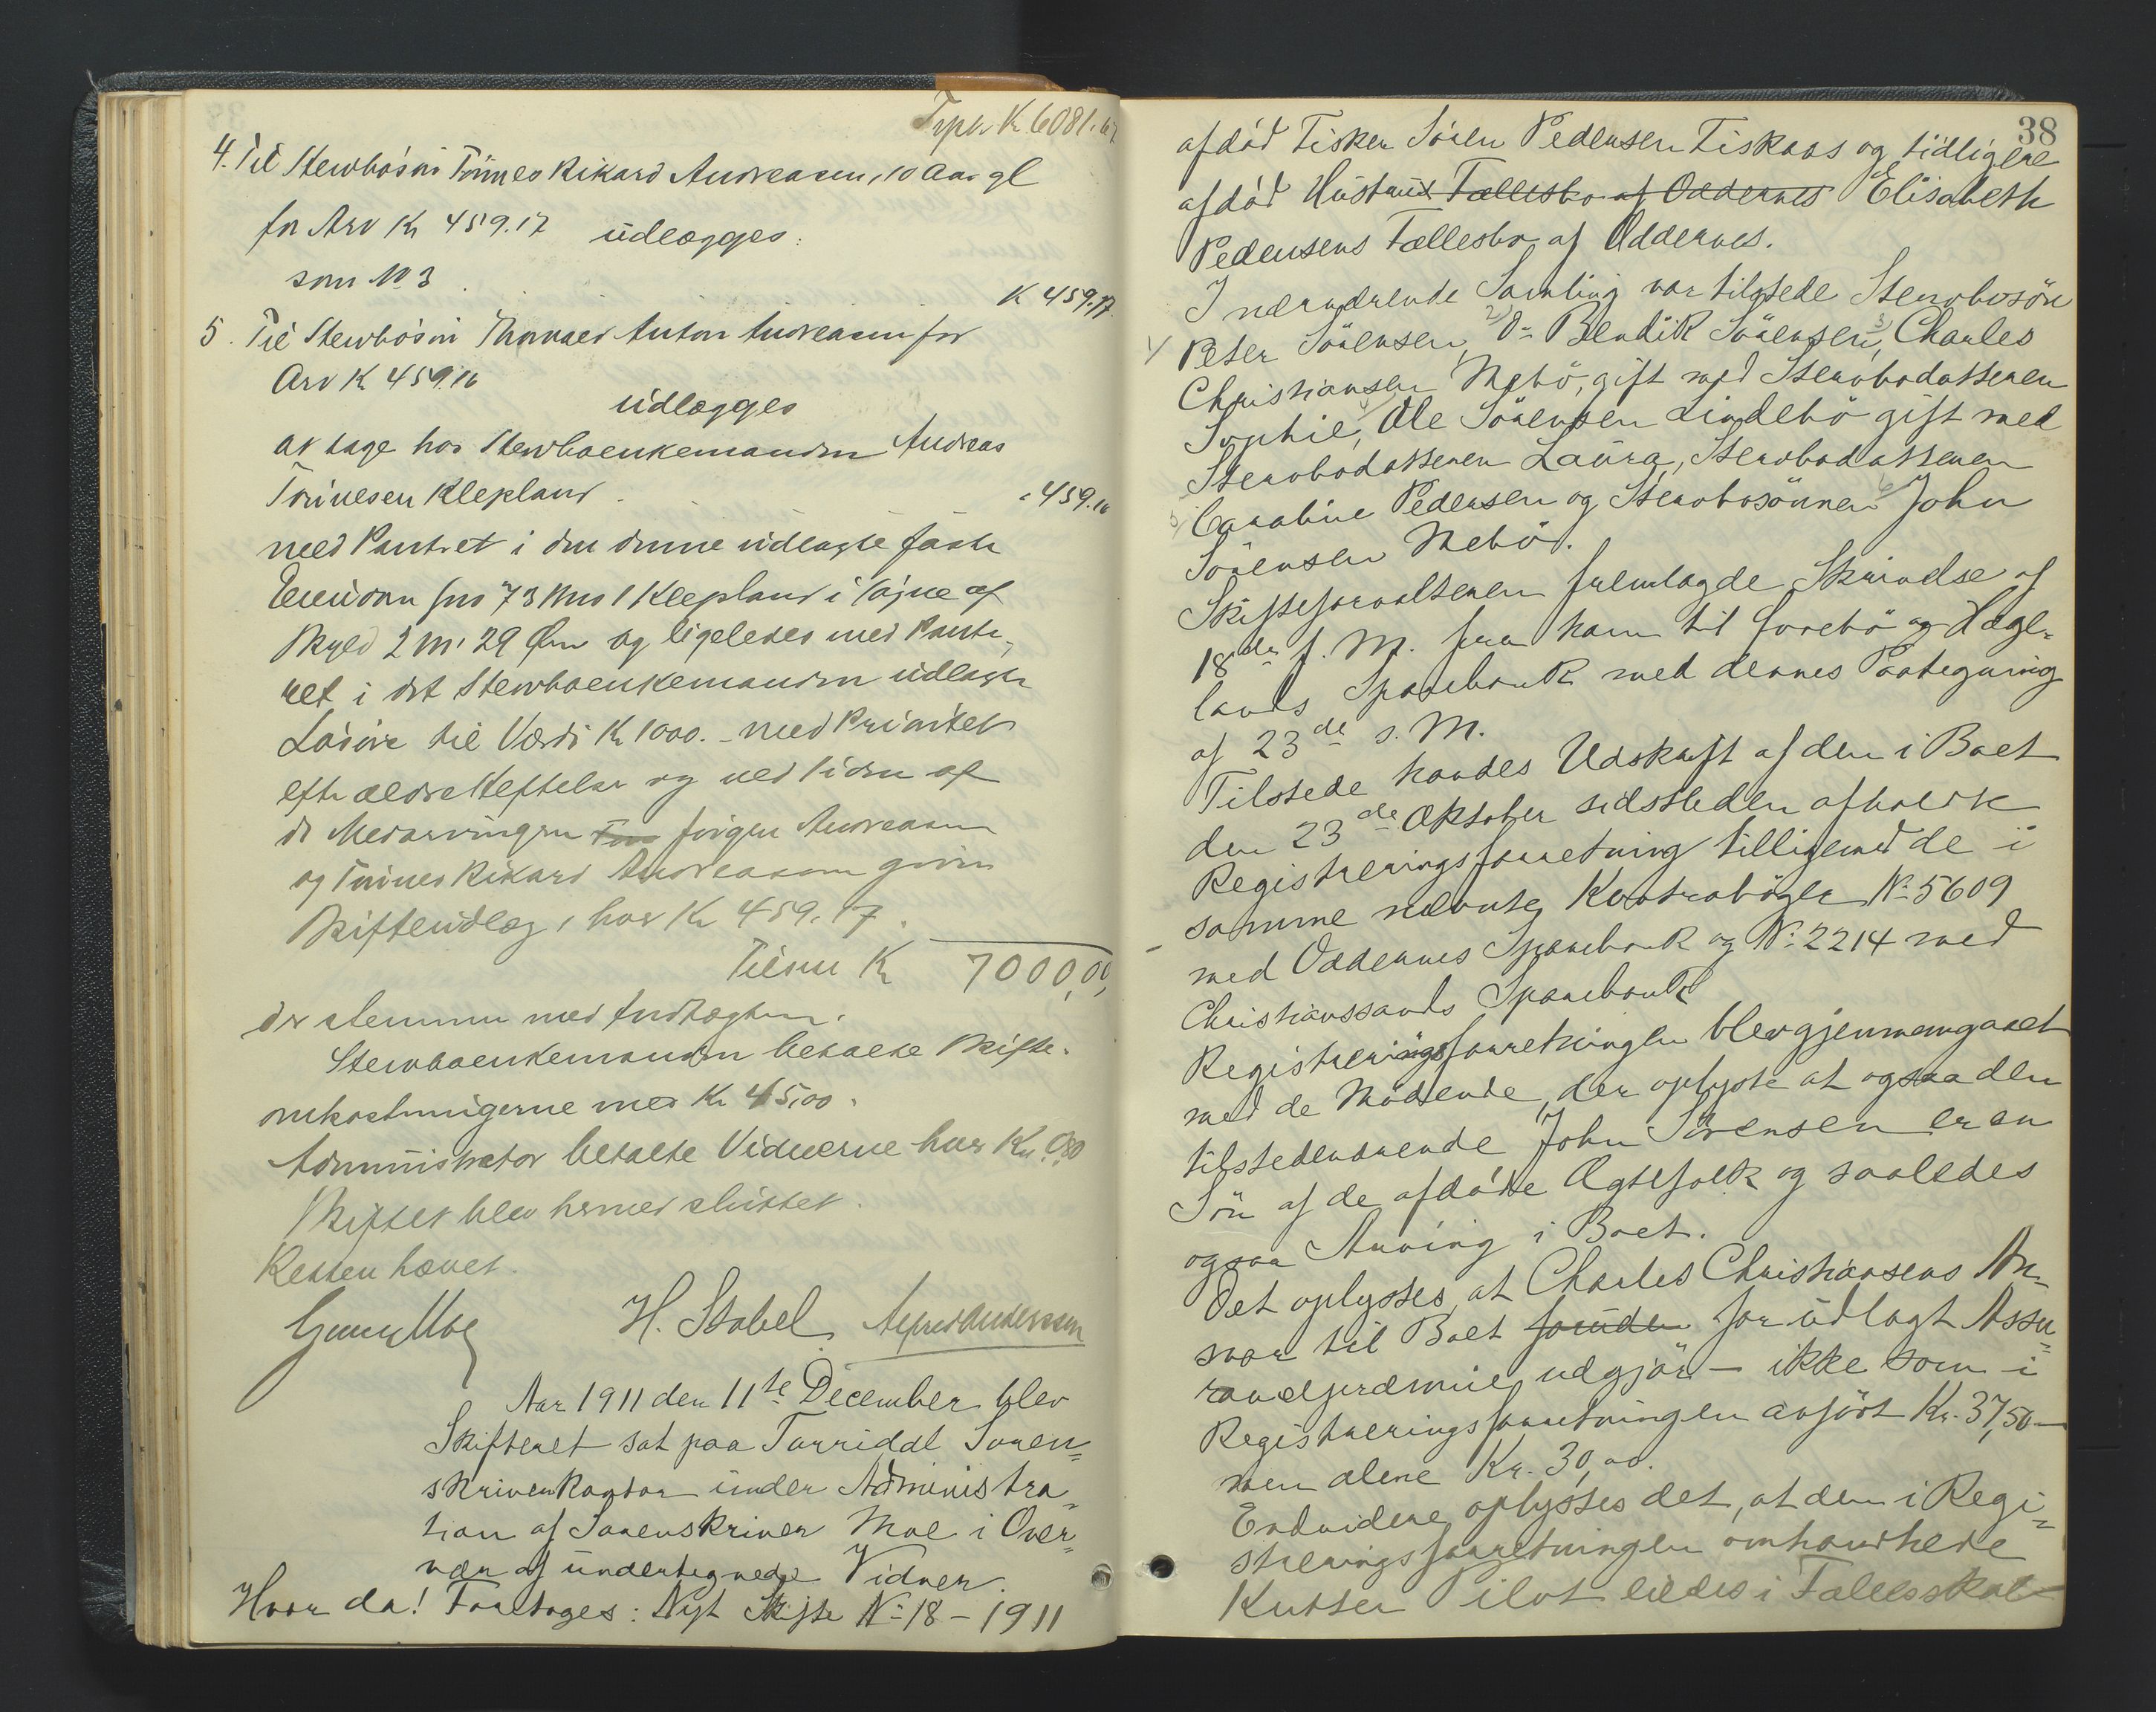 Trpt. Kr 6081.67
4. Til Stervbosøn Tønnes Rikard Andreasen, 10 Aar gl
for Arv Kr 459.17 udlægges:
som No 3
K 459.17
5. Til Stervbosøn Thomas Anton Andreasen for
Arv K 459.16
udlægges
at tage hos Stervboenkemanden Andreas
Tønnesen Klepland
" 459.16
med Panteret i den denne udlagte faste
Eiendom Gno 73 Bno 1 Klepland i Søgne af
Skyld 2 M. 29 Øre og ligeledes med Pante-
ret i det Stervboenkemanden udlagte
Løsøre til Værdi Kr 1000.- med Prioritet
efter ældre Heftelser og ved Siden af
de Medarvingen Tøn Jørgen Andreasen
og Tønnes Rikard Andreasen givne
Skifteudlæg, hver Kr 459.17.
Tilsm K 7000,00,
der stemmer med Indtægten.
Stervboenkemanden betalte Skifte-
omkostningerne med Kr 45,00.
Administrator betalte Vidnerne hver Kr. 0,80
Skiftet blev hermed sluttet.
Retten hævet.
H. Stabel Alfred Anderssen
Aar 1911 den 11te December blev
Skifteret sat paa Torridal Soren=
skriverkontor under Administra=
tion af Sorenskriver Moe i Over=
vær af undertegnede Vidner.
Hvor da! Foretoges: Nyt Skifte No 18 - 1911
38
afdød Fisker Søren Pedersen Fiskaas og tidligere
afdød Hustrus Fællesbo af Oddernes Elisabeth
Pedersens Fællesbo af Oddernes.
I nærværende Samling var tilstede Stervbosøn
1) Peter Sörensen, 2) Do Bendik Sörensen, 3) Charles
Christiansen Mebö, gift med Stervbodatteren
Sophie, 4) Ole Sörensen Lindebö gift med
Stervbodatteren Laura, Stervbodatteren
5) Caroline Pedersen og Stervbosönnen 6) John
Sörensen Mebö.
Skifteforvalteren fremlagde Skrivelse af
18de f. M. fra ham til Grebö og Haege=
lands Sparebank med dennes Paategning
af 23de s. M.
Tilstede havdes Udskrift af den i Boet
den 23de Oktober sidstleden afholdte
Registreringsforretning tilligemed de i
samme nævnte Kontrabøger No 5609
med Oddernes Sparebank og No 2214 med
Christianssands Sparebank
Registreringsforretningen blev gjennemgaaet
med de Mødende, der oplyste at ogsaa den
tilstedeværende John Sörensen er en
Sön af de afdøde Ægtefolk og saaledes
ogsaa Arving i Boet.
Det oplystes, at Charles Christiansens An=
svar til Boet foruden for udlagt Assu=
rancepræmie, udgjør - ikke som i
Registreringsforretningen anført Kr. 37,50 -
men alene Kr. 30,00.
Endvidere oplystes det, at den i Regi=
streringsforretningen omhandlede
Kutter Pilot eiedes i Fællesskab